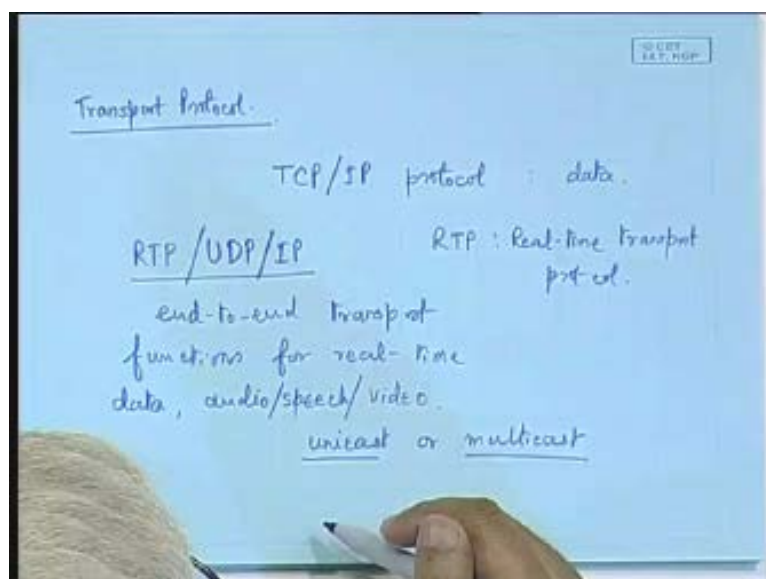 Transport Protocol.
TCP/IP protocol : data.
RTP/UDP/IP
RTP : Real-time transport protocol.
end-to-end transport
functions for real-time
data, audio/speech/video.
unicast or multicast